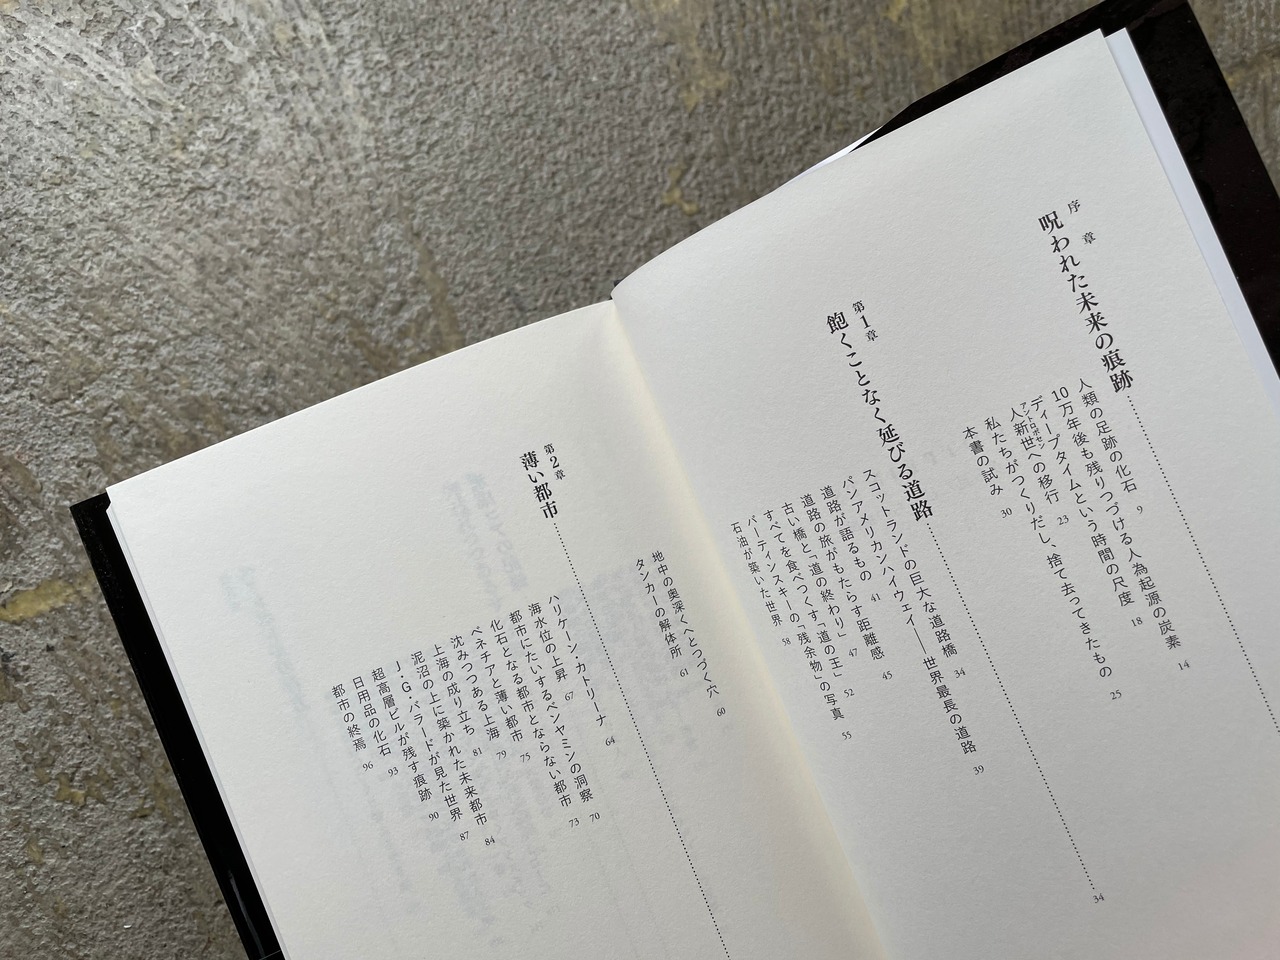 序章
呪われた未来の痕跡
人類の足跡の化石 9
10万年後も残りつづける人為起源の炭素 14
ディープタイムという時間の尺度 18
人新世への移行 23
アントロポセン
私たちがつくりだし、捨て去ってきたもの 25
本書の試み 30
第1章
飽くことなく延びる道路 34
スコットランドの巨大な道路橋 34
パンアメリカンハイウェイ——世界最長の道路 39
道路が語るもの 41
道路の旅がもたらす距離感 45
古い橋と「道の終わり」 47
すべてを食べつくす「道の王」 52
バーティンスキーの「残余物」の写真 55
石油が築いた世界 58
地中の奥深くへとつづく穴 60
タンカーの解体所 61
第2章
薄い都市
ハリケーン・カトリーナ 64
海水位の上昇 67
都市にたいするベンヤミンの洞察 70
化石となる都市とならない都市 73
ベネチアと薄い都市 75
沈みつつある上海 79
上海の成り立ち 81
泥沼の上に築かれた未来都市 84
J・G・バラードが見た世界 87
超高層ビルが残す痕跡 90
日用品の化石 93
都市の終焉 96